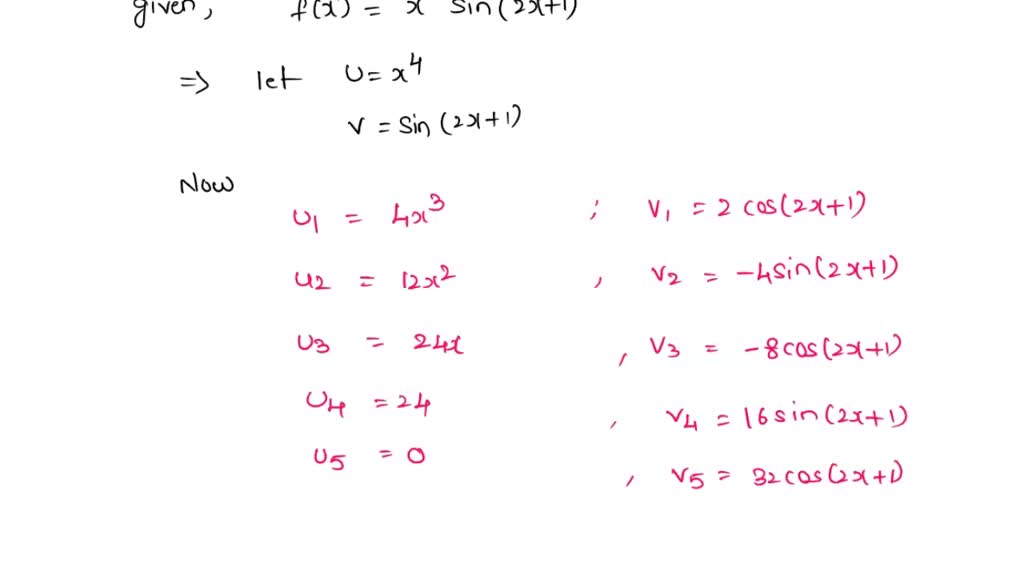 given, f(x) = x sin(2x+1)
=> let U = x^4
V = sin(2x+1)
Now
U1 = 4x^3 ; V1 = 2 cos(2x+1)
U2 = 12x^2 , V2 = -4sin(2x+1)
U3 = 24x , V3 = -8cos(2x+1)
U4 = 24 , V4 = 16sin(2x+1)
U5 = 0 , V5 = 32cos(2x+1)